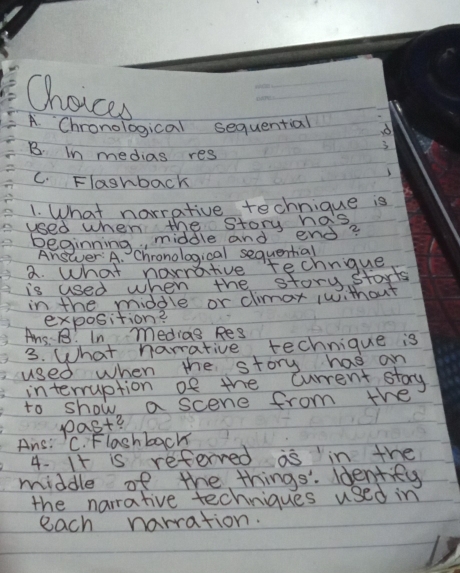 Choices
A. Chronological sequential
B. In medias res
C. Flashback
1. What narrative technique is
used when the story has
beginning, middle and end?
Answer: A. Chronological sequential
2. What narrative technique
is used when the story starts
in the middle or climax, without
exposition?
Ans: B. In Medias Res
3. What narrative technique is
used when the story has an
interruption of the current story
to show a scene from the
past?
Ans: C. Flashback
4. It is referred as "in the
middle of the things". Identify
the narrative techniques used in
each narration.